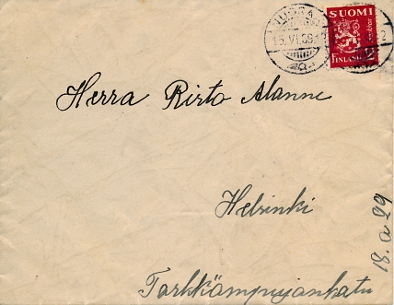 SUOMI
FINLAND 2
Herra Risto Alanne
Helsinki
Tarkkampujankatu
18. a 29